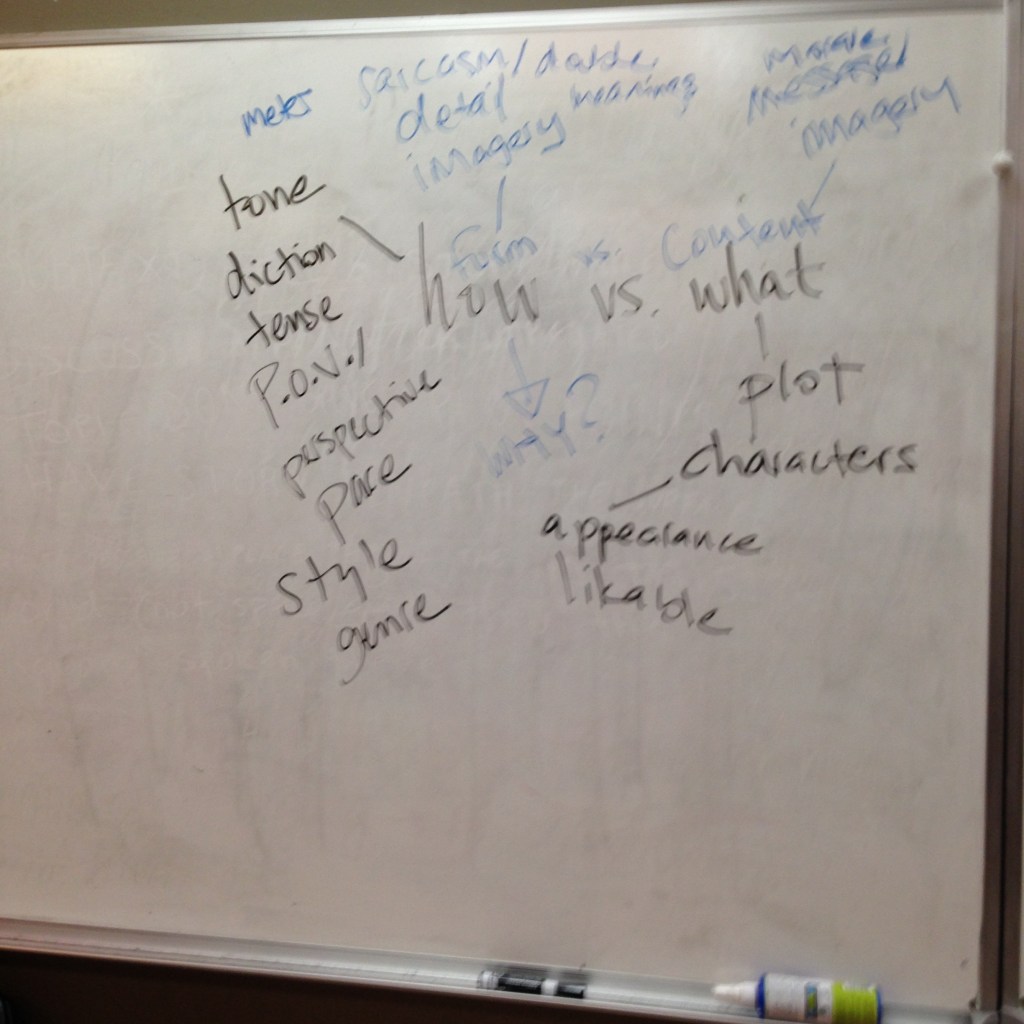 meter
sarcasm/double meaning
detail
imagery
morale
message
imagery
tone
diction
tense
P.O.V./
perspective
pace
style
genre
form vs. content
how vs. what
WHY?
plot
characters
appearance
likable